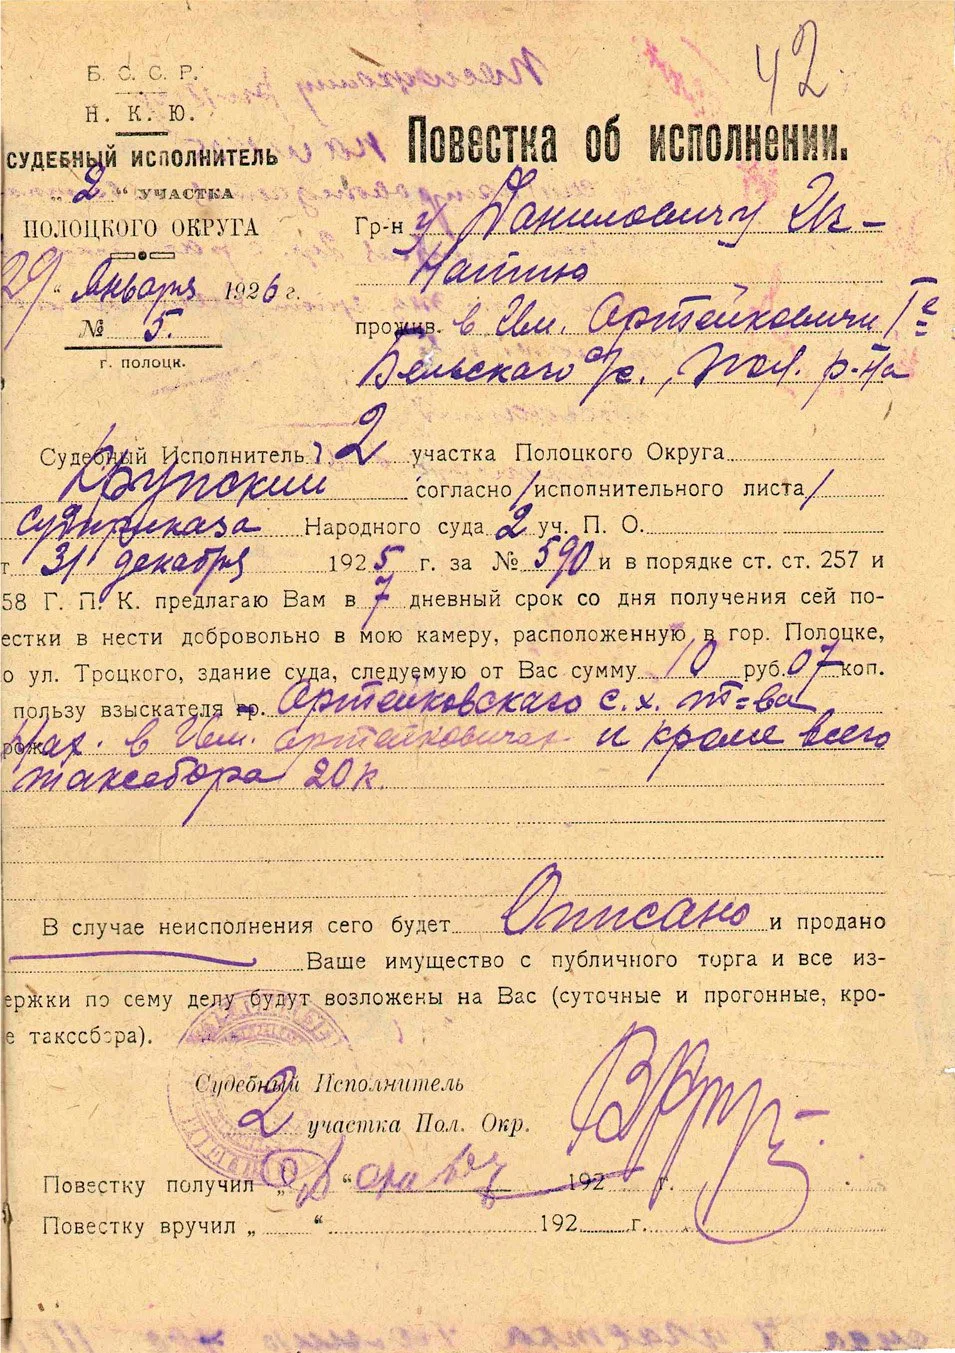 42
Б. С. С. Р.
Н. К. Ю.
СУДЕБНЫЙ ИСПОЛНИТЕЛЬ
„ 2 “ УЧАСТКА
ПОЛОЦКОГО ОКРУГА
29 “ Января 1926 г.
№ 5.
г. ПОЛОЦК.
Повестка об исполнении.
Гр-н у Даниловичу Иг-
натию
прожив. в Им. Артейковичи
Бельскаго с/с., Пол. р-на
Судебный Исполнитель 2 участка Полоцкого Округа
Крупский согласно /исполнительного листа/
судприказа Народного суда 2 уч. П. О.
т 31 декабря 1925 г. за № 590 и в порядке ст. ст. 257 и
58 Г. П. К. предлагаю Вам в 7 дневный срок со дня получения сей по-
естки в нести добровольно в мою камеру, расположенную в гор. Полоцке,
о ул. Троцкого, здание суда, следуемую от Вас сумму 10 руб. 07 коп.
пользу взыскателя гр. Артейковскаго с. х. т-ва
в Им. Артейковичах и кроме всего
таксебора 20 к.
В случае неисполнения сего будет Описано и продано
Ваше имущество с публичного торга и все из-
ержки по сему делу будут возложены на Вас (суточные и прогонные, кро-
е такссбора).
Судебный Исполнитель
2 участка Пол. Окр.
Повестку получил „ “ 192 г.
Повестку вручил „ “ 192 г.